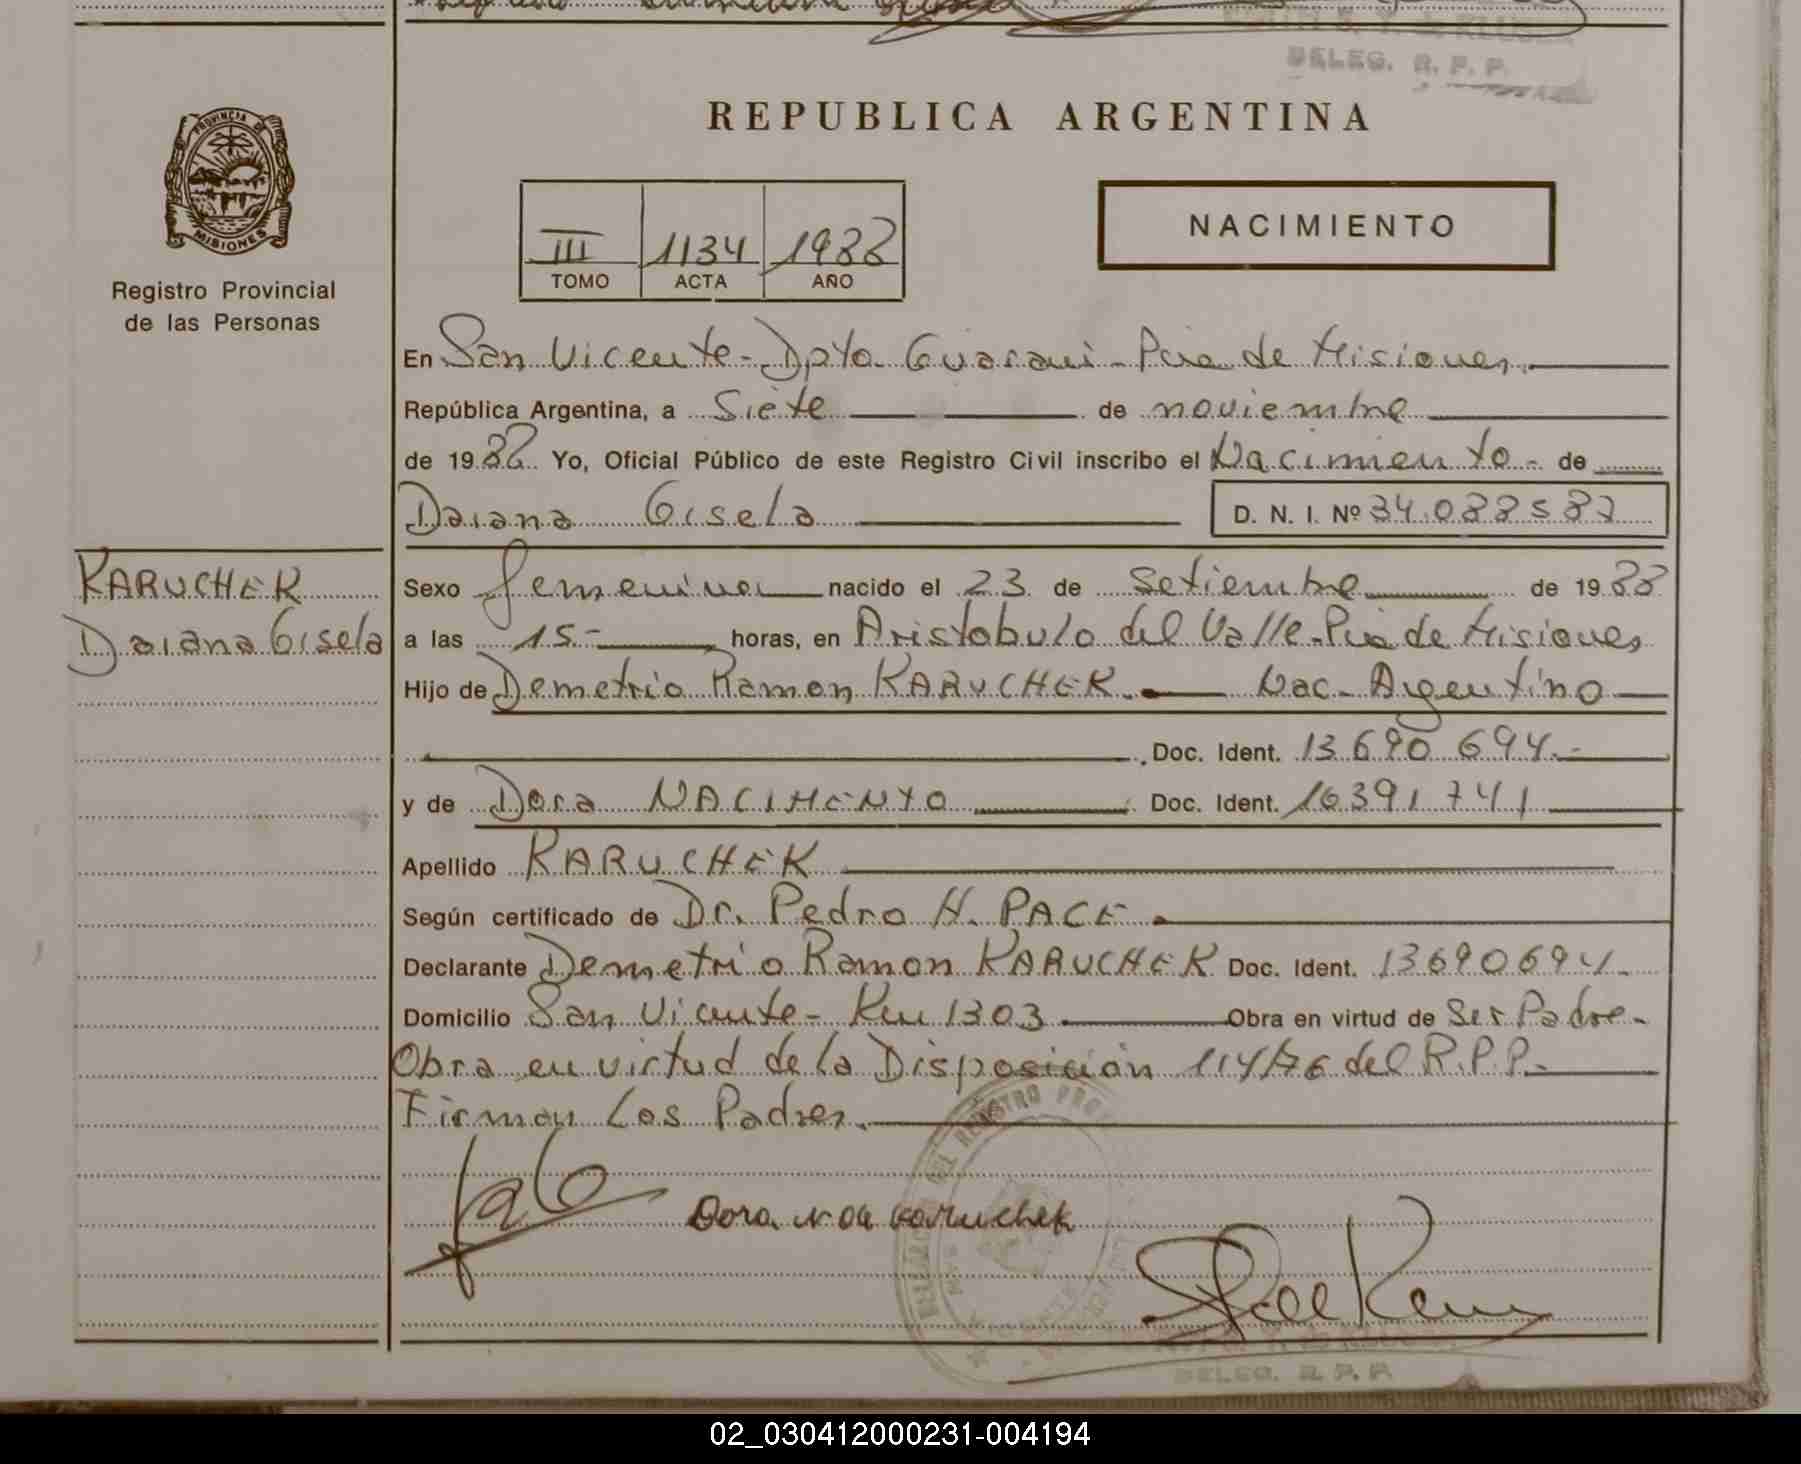 DELEG. R. P. P.
PROVINCIA DE
MISIONES
Registro Provincial
de las Personas
REPUBLICA ARGENTINA
NACIMIENTO
III 1134 1988
TOMO ACTA AÑO
En San Vicente - Dpto Guarani - Pcia de Misiones.
República Argentina, a Siete de noviembre
de 1988 Yo, Oficial Público de este Registro Civil inscribo el Nacimiento - de
Daiana Gisela D. N. I. Nº 34.088587
KARUCHEK
Daiana Gisela
Sexo femenino nacido el 23 de Setiembre de 1988
a las 15.- horas, en Aristobulo del Valle - Pcia de Misiones
Hijo de Demetrio Ramon KARUCHEK. Nac - Argentino
Doc. Ident. 13.690.694.-
y de Dora NACIMENTO Doc. Ident. 16391741
Apellido KARUCHEK
Según certificado de Dr. Pedro H. PACE.
Declarante Demetrio Ramon KARUCHEK Doc. Ident. 13690694.
Domicilio San Vicente - Km 1303 Obra en virtud de Ser Padre -
Obra en virtud de la Disposición 114/76 del R.P.P.-
Firman Los Padres.
Dora N de Karuchek
DELEG. R. P. P.
02_030412000231-004194